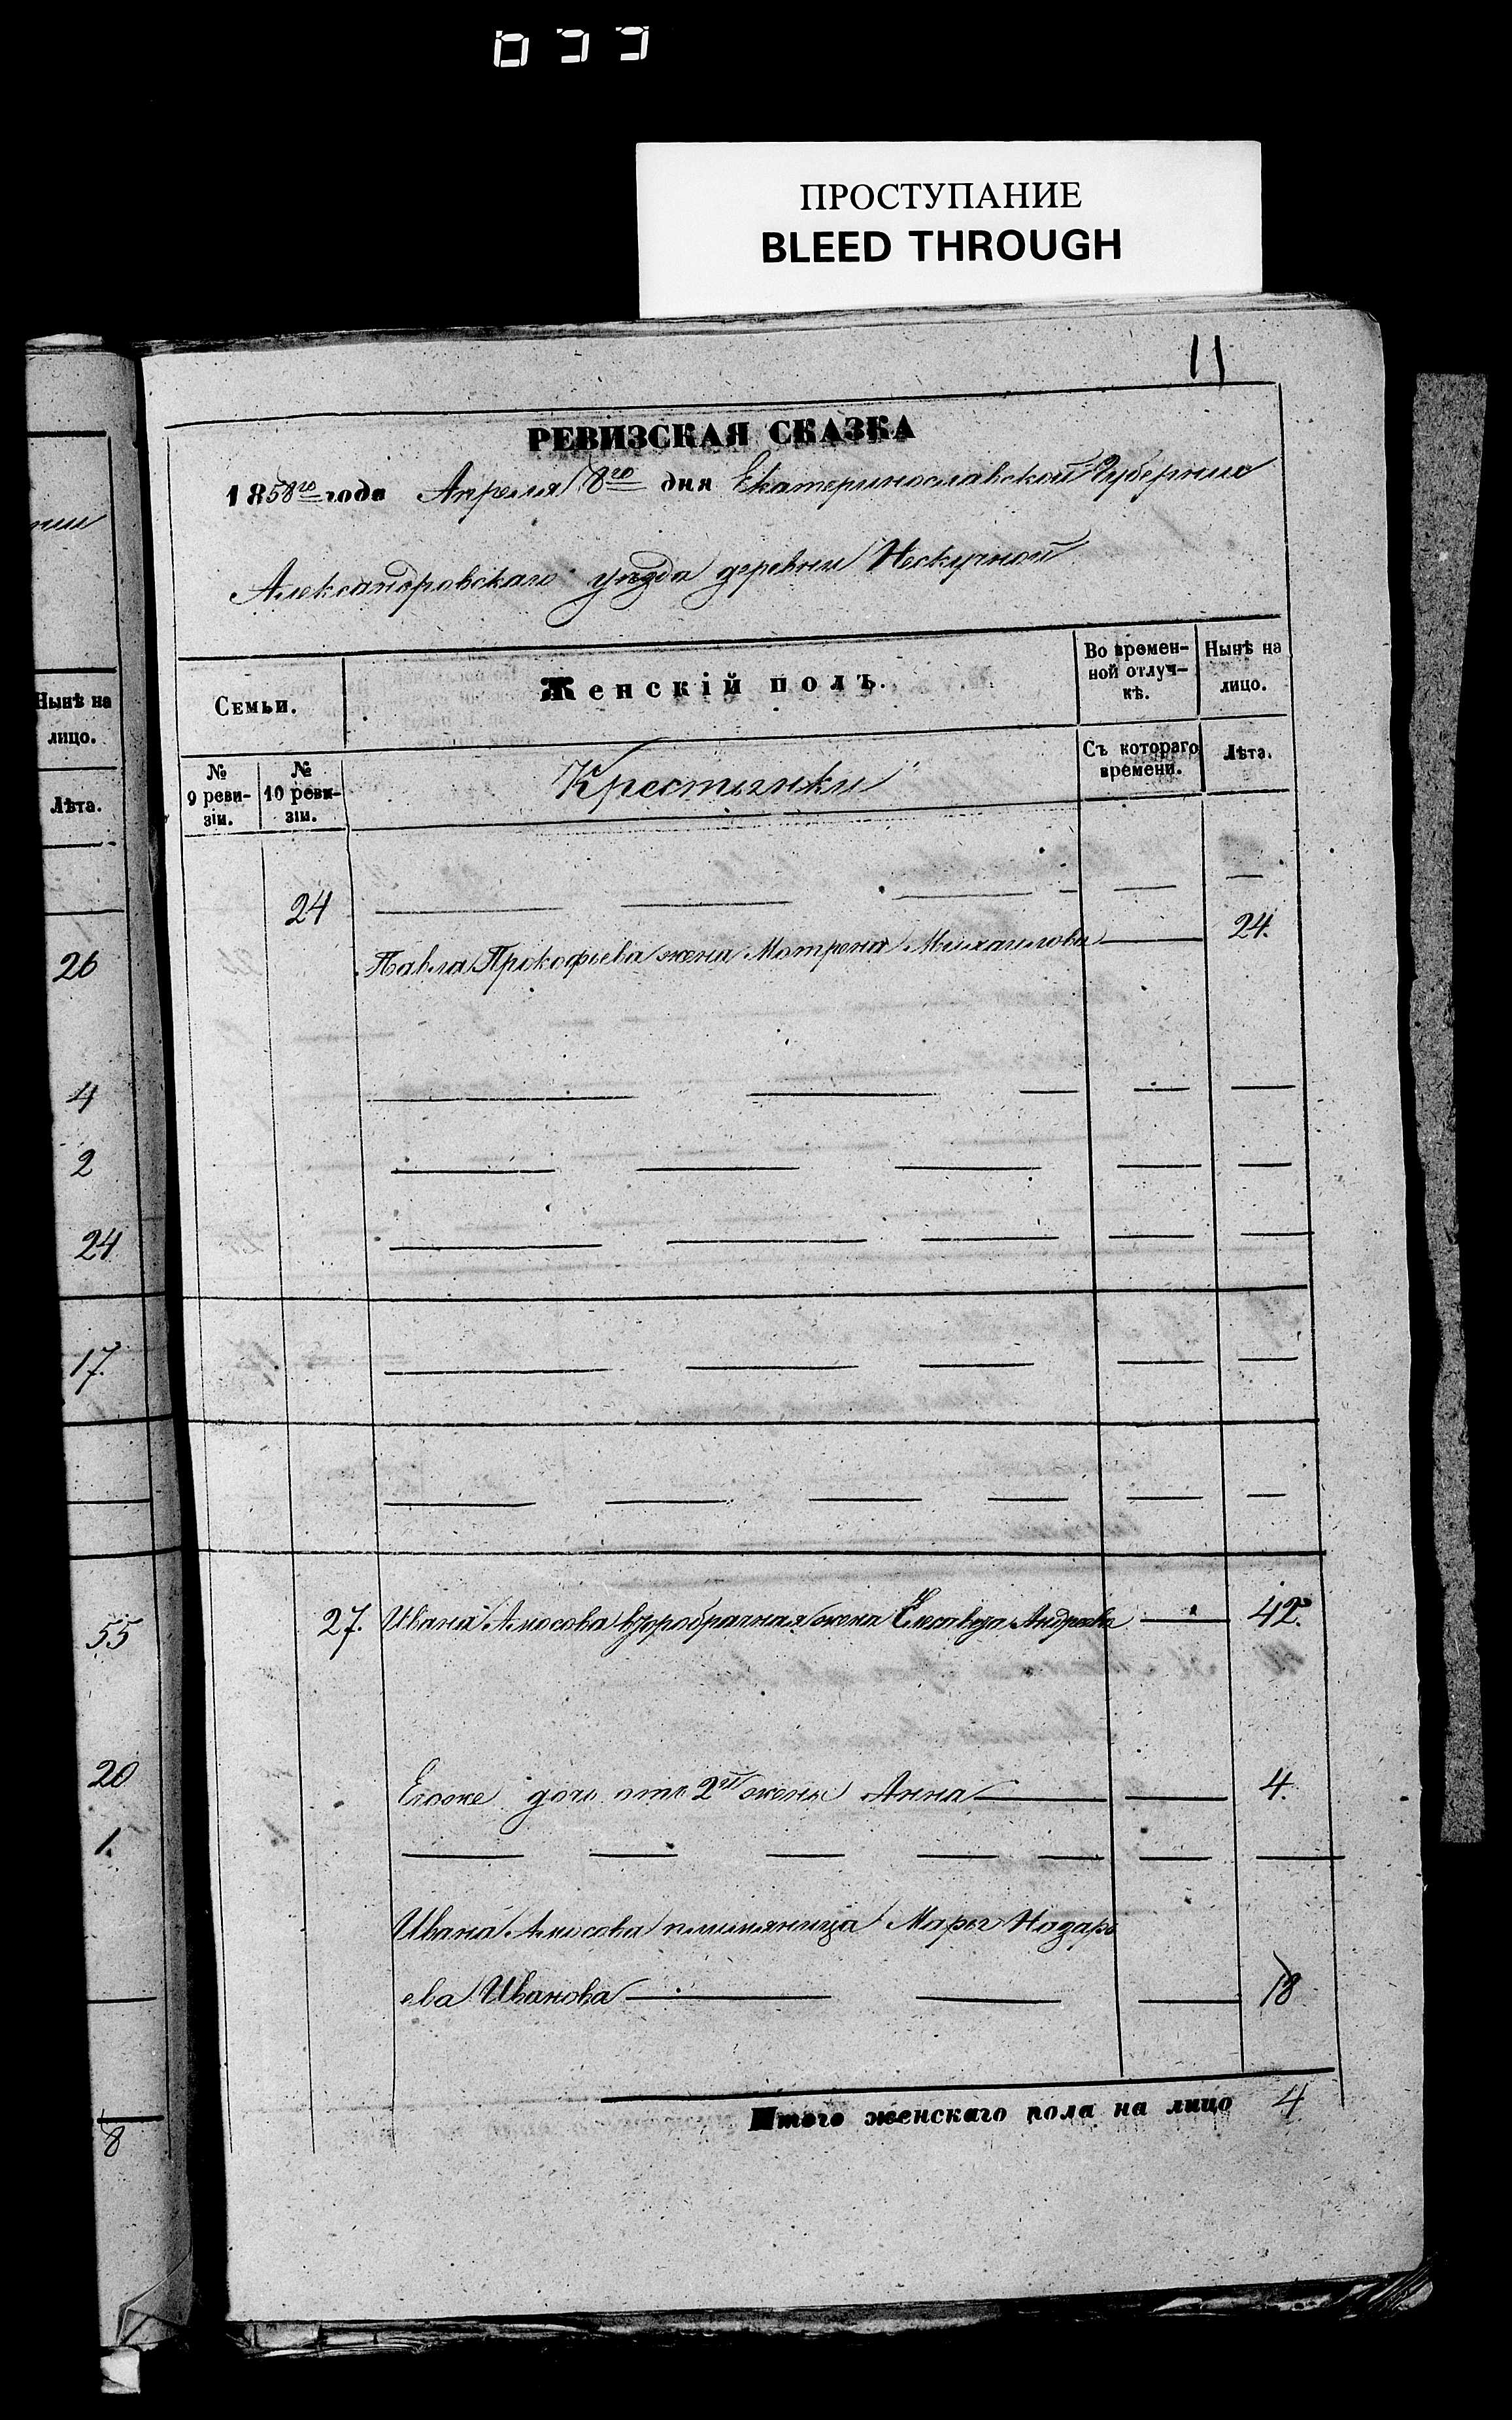 ПРОСТУПАНИЕ
BLEED THROUGH
11
РЕВИЗСКАЯ СКАЗКА
1858го года Апреля 8го дня Екатеринославской Губернии
Александровскаго уезда деревни Нескучной
нии
Семьи.
Женскій полъ.
Во времен-
ной отлуч-
кѣ.
Нынѣ на
лицо.
Нынѣ на
лицо.
№
9 реви-
зіи.
№
10 реви-
зіи.
Крестьянки
Съ котораго
времени.
Лѣта.
Лѣта.
24
Павла Прокофьева жена Матрена Михаилова 24.
26
4
2
24
17.
27. Ивана Амосова второбрачная жена Елисавета Андреева 42.
55
Егоже дочь отъ 2й жены Анна 4.
20
1.
Ивана Амосова племяница Марья Назарь
ева Иванова 18
Итого женскаго пола на лицо 4
8